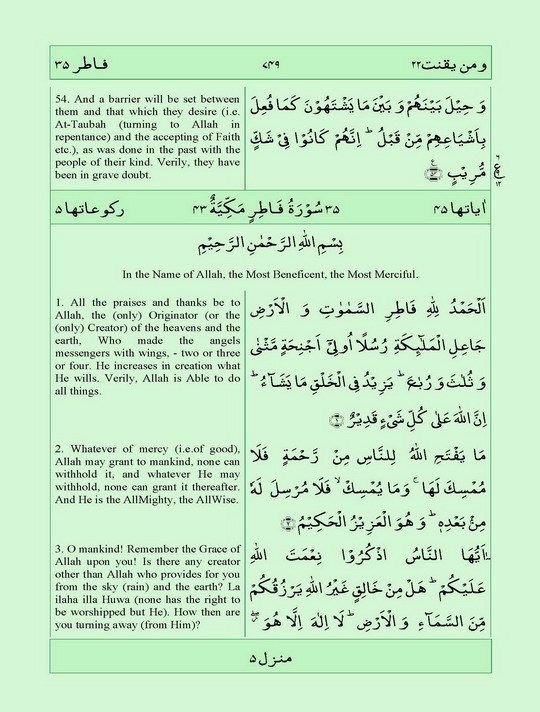 فاطر ۳۵
۷۴۹
ومن یقنت ۲۲
54. And a barrier will be set between
them and that which they desire (i.e.
At-Taubah (turning to Allah in
repentance) and the accepting of Faith
etc.), as was done in the past with the
people of their kind. Verily, they have
been in grave doubt.
وَ حِيْلَ بَيْنَهُمْ وَ بَيْنَ مَا يَشْتَهُوْنَ كَمَا فُعِلَ
بِاَشْيَاعِهِمْ مِّنْ قَبْلُ ؕ اِنَّهُمْ كَانُوْا فِيْ شَكٍّ
مُّرِيْبٍ ﴿۵۴﴾
اٰیاتها ۴۵
۳۵ سُوْرَةُ فَاطِرٍ مَكِّيَّةٌ ۴۳
رکوعاتها ۵
بِسْمِ اللّٰهِ الرَّحْمٰنِ الرَّحِيْمِ
In the Name of Allah, the Most Beneficent, the Most Merciful.
1. All the praises and thanks be to
Allah, the (only) Originator (or the
(only) Creator) of the heavens and the
earth, Who made the angels
messengers with wings, - two or three
or four. He increases in creation what
He wills. Verily, Allah is Able to do
all things.
اَلْحَمْدُ لِلّٰهِ فَاطِرِ السَّمٰوٰتِ وَ الْاَرْضِ
جَاعِلِ الْمَلٰٓىِٕكَةِ رُسُلًا اُولِيْۤ اَجْنِحَةٍ مَّثْنٰى
وَ ثُلٰثَ وَ رُبٰعَ ؕ يَزِيْدُ فِي الْخَلْقِ مَا يَشَآءُ ؕ
اِنَّ اللّٰهَ عَلٰى كُلِّ شَيْءٍ قَدِيْرٌ ﴿۱﴾
2. Whatever of mercy (i.e.of good),
Allah may grant to mankind, none can
withhold it, and whatever He may
withhold, none can grant it thereafter.
And He is the AllMighty, the AllWise.
مَا يَفْتَحِ اللّٰهُ لِلنَّاسِ مِنْ رَّحْمَةٍ فَلَا
مُمْسِكَ لَهَا ۚ وَمَا يُمْسِكْ ۙ فَلَا مُرْسِلَ لَهٗ
مِنْۢ بَعْدِهٖ ؕ وَ هُوَ الْعَزِيْزُ الْحَكِيْمُ ﴿۲﴾
3. O mankind! Remember the Grace of
Allah upon you! Is there any creator
other than Allah who provides for you
from the sky (rain) and the earth? La
ilaha illa Huwa (none has the right to
be worshipped but He). How then are
you turning away (from Him)?
يٰۤاَيُّهَا النَّاسُ اذْكُرُوْا نِعْمَتَ اللّٰهِ
عَلَيْكُمْ ؕ هَلْ مِنْ خَالِقٍ غَيْرُ اللّٰهِ يَرْزُقُكُمْ
مِّنَ السَّمَآءِ وَ الْاَرْضِ ؕ لَاۤ اِلٰهَ اِلَّا هُوَ
منزل ۵